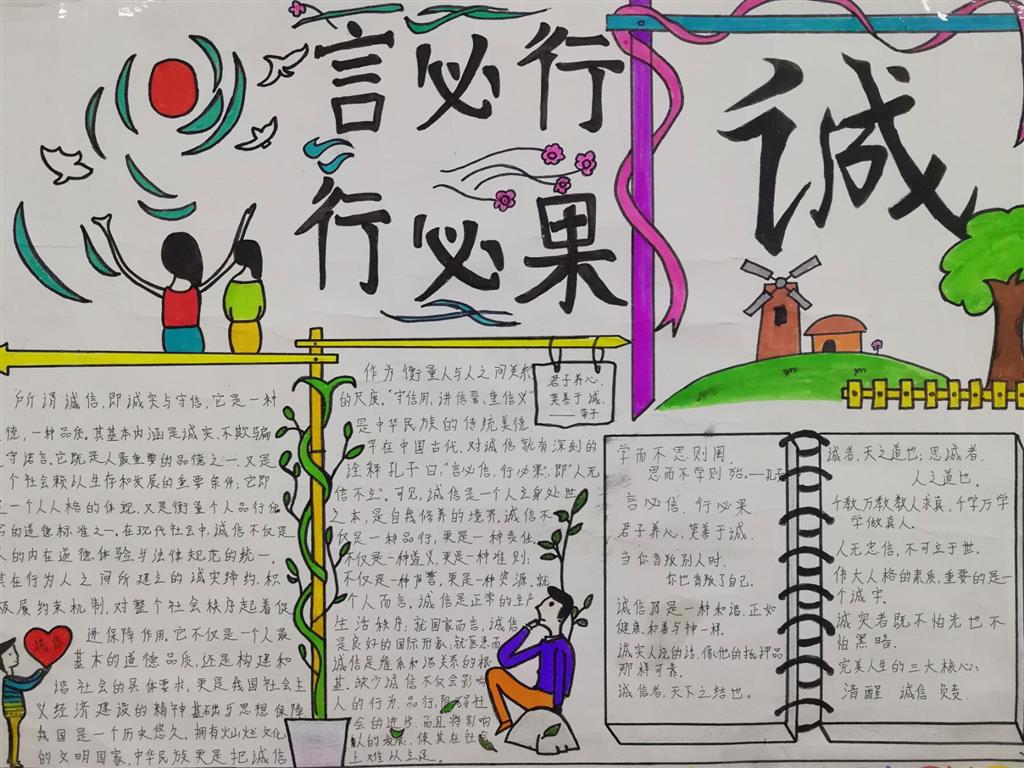 言必行
行必果
诚
所谓诚信，即诚实与守信，它是一种
德，一种品质。其基本内涵是诚实、不欺骗
守诺言。它既是人最重要的品德之一，又是
个社会赖以生存和发展的重要条件；它即
一个人人格的体现，又是衡量个人品行优
的道德标准之一。在现代社会中，诚信不仅是
人的内在道德体验与法律规范的统一，
其在行为人之间所建立的诚实缔约、积
极展约束机制，对整个社会秩序起着促
进保障作用。它不仅是一个人最
基本的道德品质，还是构建和
谐社会的具体要求，更是我国社会主
义经济建设的精神基础与思想保障
我国是一个历史悠久、拥有灿烂文化
的文明国家，中华民族更是把诚信
诚信
作为衡量人与人之间关系
的尺度。"守信用、讲信誉、重信义"
是中华民族的传统美德。
早在中国古代，对诚信就有深刻的
诠释孔子曰："言必信，行必果"，即"人无
信不立"。可见，诚信是一个人立身处世
之本，是自我修养的境界。诚信不
仅是一种品行，更是一种责任，
不仅是一种道义，更是一种准则；
不仅是一种声誉，更是一种资源。就
个人而言，诚信是正常的生产
生活秩序；就国家而言，诚信
是良好的国际形象；就医患而
诚信是维系和谐关系的根
基。缺少诚信不仅会影响
人的行为、品行，阻碍社
会的进步，而且将影响
人的发展，使其在社会
上难以立足。
君子养心，
莫善于诚。
——荀子
学而不思则罔
思而不学则殆。——孔
言必信，行必果
君子养心，莫善于诚。
当你背叛别人时，
你也背叛了自己。
诚信乃是一种和谐，正如
健康、和善与神一样。
诚实人说的话，像他的抵押品
那样可靠。
诚信者，天下之结也。
诚者，天之道也；思诚者，
人之道也。
千教万教教人求真，千学万学
学做真人。
人无忠信，不可立于世。
伟大人格的素质，重要的是一
个诚字。
诚实者既不怕光也不
怕黑暗。
完美人生的三大核心：
清醒 诚信 负责